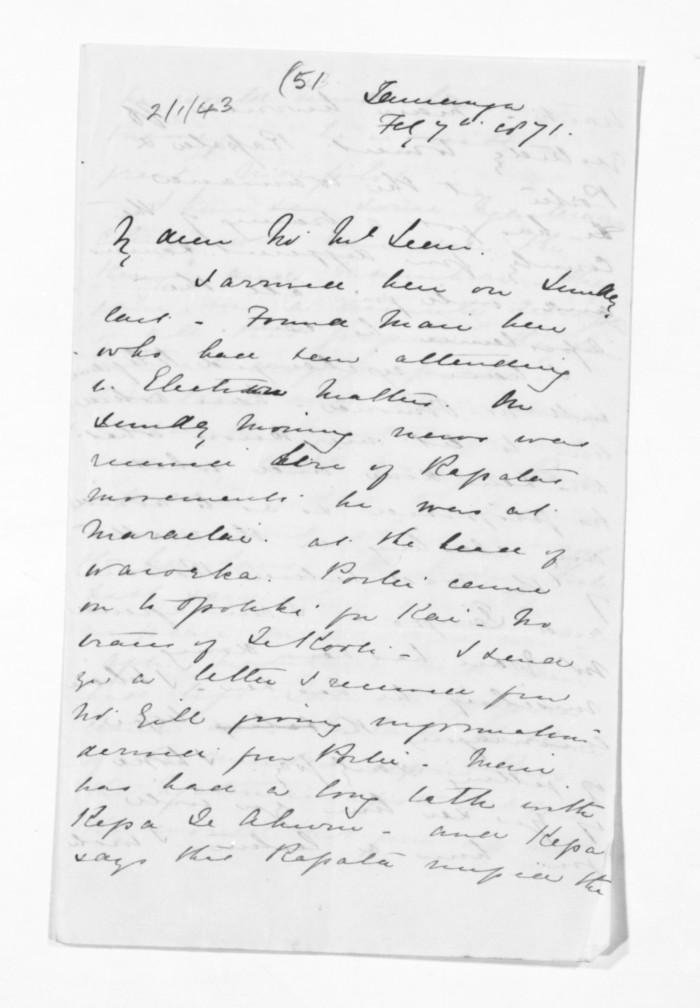 (51
2/1/43
Tauranga
Feby 7th 1871.
My dear Mr McLean.
I arrived here on Sunday
last - Found Mair here
who had been attending
to Election matters. On
Sunday Morning news was
received here of Rapatas
movements he was at
Maraetai. at the head of
waioeka. Porter came
on to Opotiki for Kai - No
traces of Te Kooti - I send
you a letter I received from
Mr Gill giving information
derived from Porter - Mair
has had a long talk with
Kepa Te Ahuru - and Kepa
says that Rapata missed the